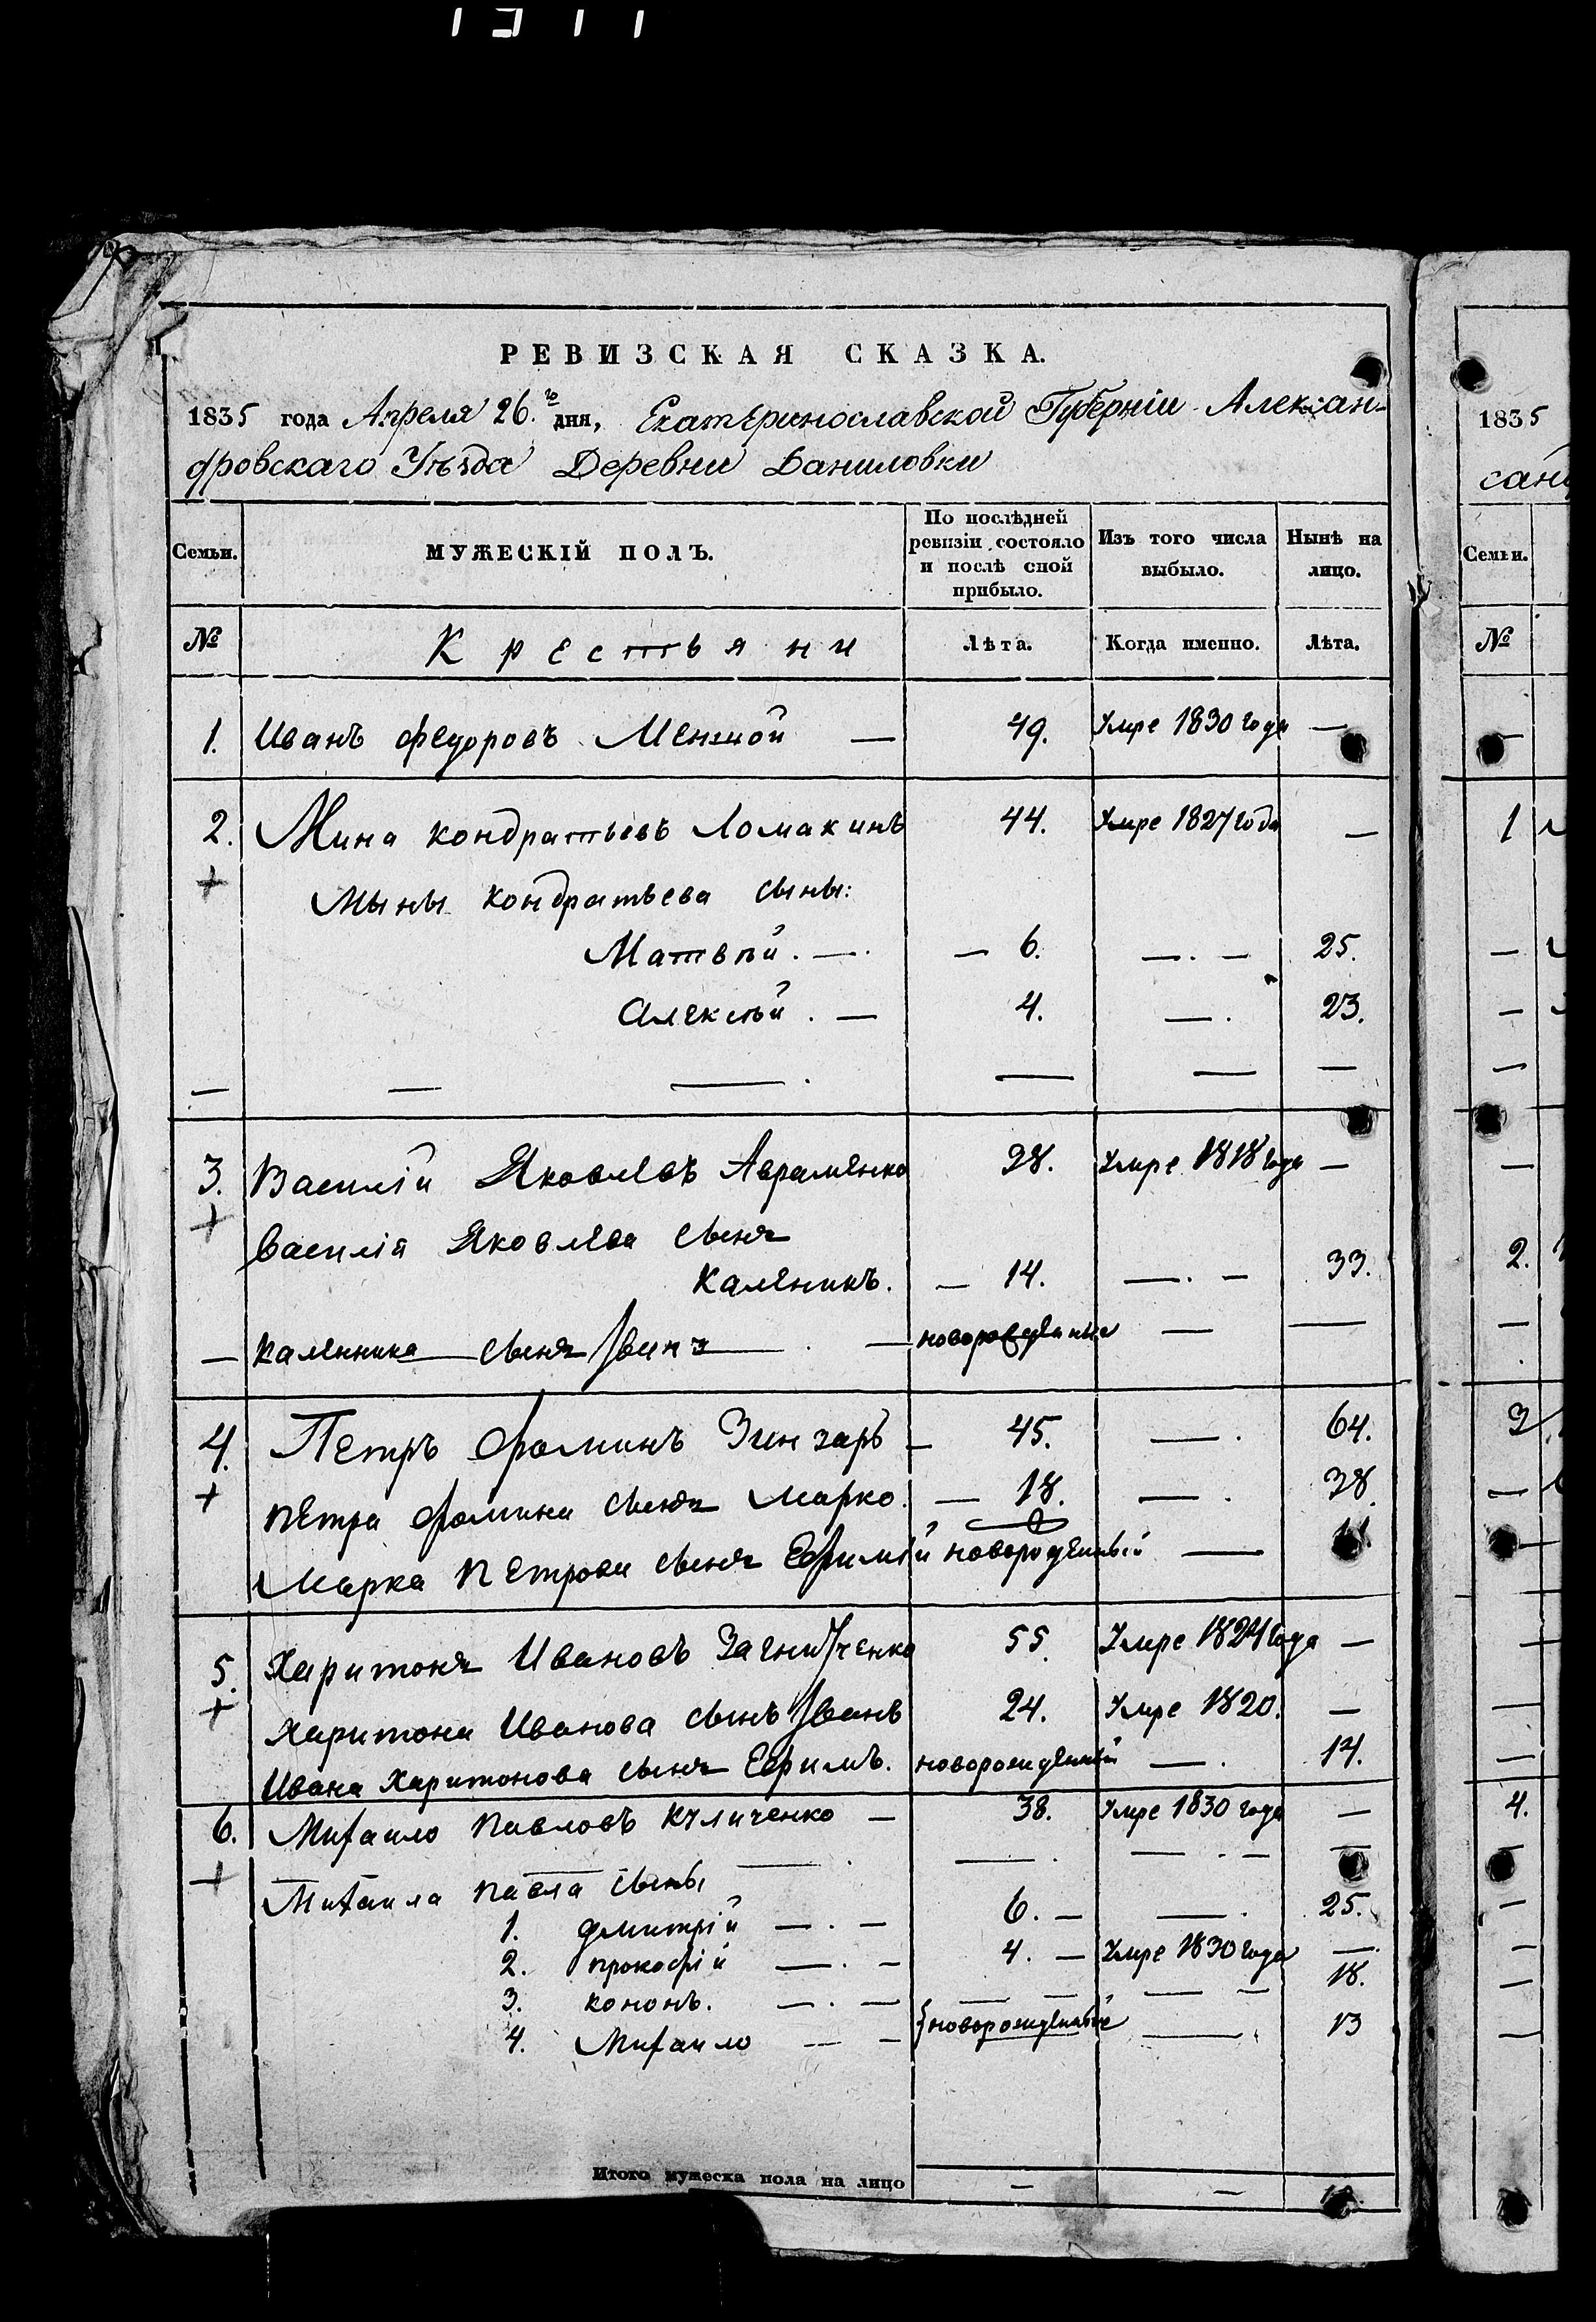 РЕВИЗСКАЯ СКАЗКА.
1835 года Апреля 26.го дня, Екатеринославской Губерніи Алексан-
дровскаго Уѣзда Деревни Даниловки
Семьи. МУЖЕСКІЙ ПОЛЪ. По послѣдней ревизіи состояло и послѣ оной прибыло. Изъ того числа выбыло. Нынѣ на лицо.
№ Крестьяни Лѣта. Когда именно. Лѣта.
1. Иванъ Федоровъ — 49. Умре 1830 года —
2. Мина Кондратьевъ Ломакинъ 44. Умре 1827 года —
Мыны Кондратьева сыны:
Матвѣй. — — 6. — . — 25.
Алексѣй . — 4. — . 23.
— — — . — — —
3. Василій Яковлевъ Авраменко 28. Умре 1818 года —
Василія Яковлева сынъ
Каленикъ. — 14. — . — 33.
— Каленика сынъ — — —
4. Петръ Фоминъ Зинзаръ — 45. — . 64.
Петра Фомина сынъ Марко. — 18. — . 38.
Марка Петрова сынъ Ефимій новорожденный —
5. Харитонъ Ивановъ 55. Умре 1824 года —
Харитона Иванова сынъ Иванъ 24. Умре 1820. —
Ивана Харитонова сынъ Ефимъ. новорожденный — . 14.
6. Михаило Павловъ Куличенко — 38. Умре 1830 года —
Михаила Павла сыны
1. Дмитрій — . — 6. — — . 25.
2. Прокофій — . — 4. — Умре 1830 года —
3. Кононъ. — . — — — 18.
4. Михаило — — новорожденные — 13
Итого мужеска пола на лицо — —
1835
сан
Семьи.
№
—
1
—
—
—
—
2.
—
3
—
—
—
—
4.
—
—
—
—
—